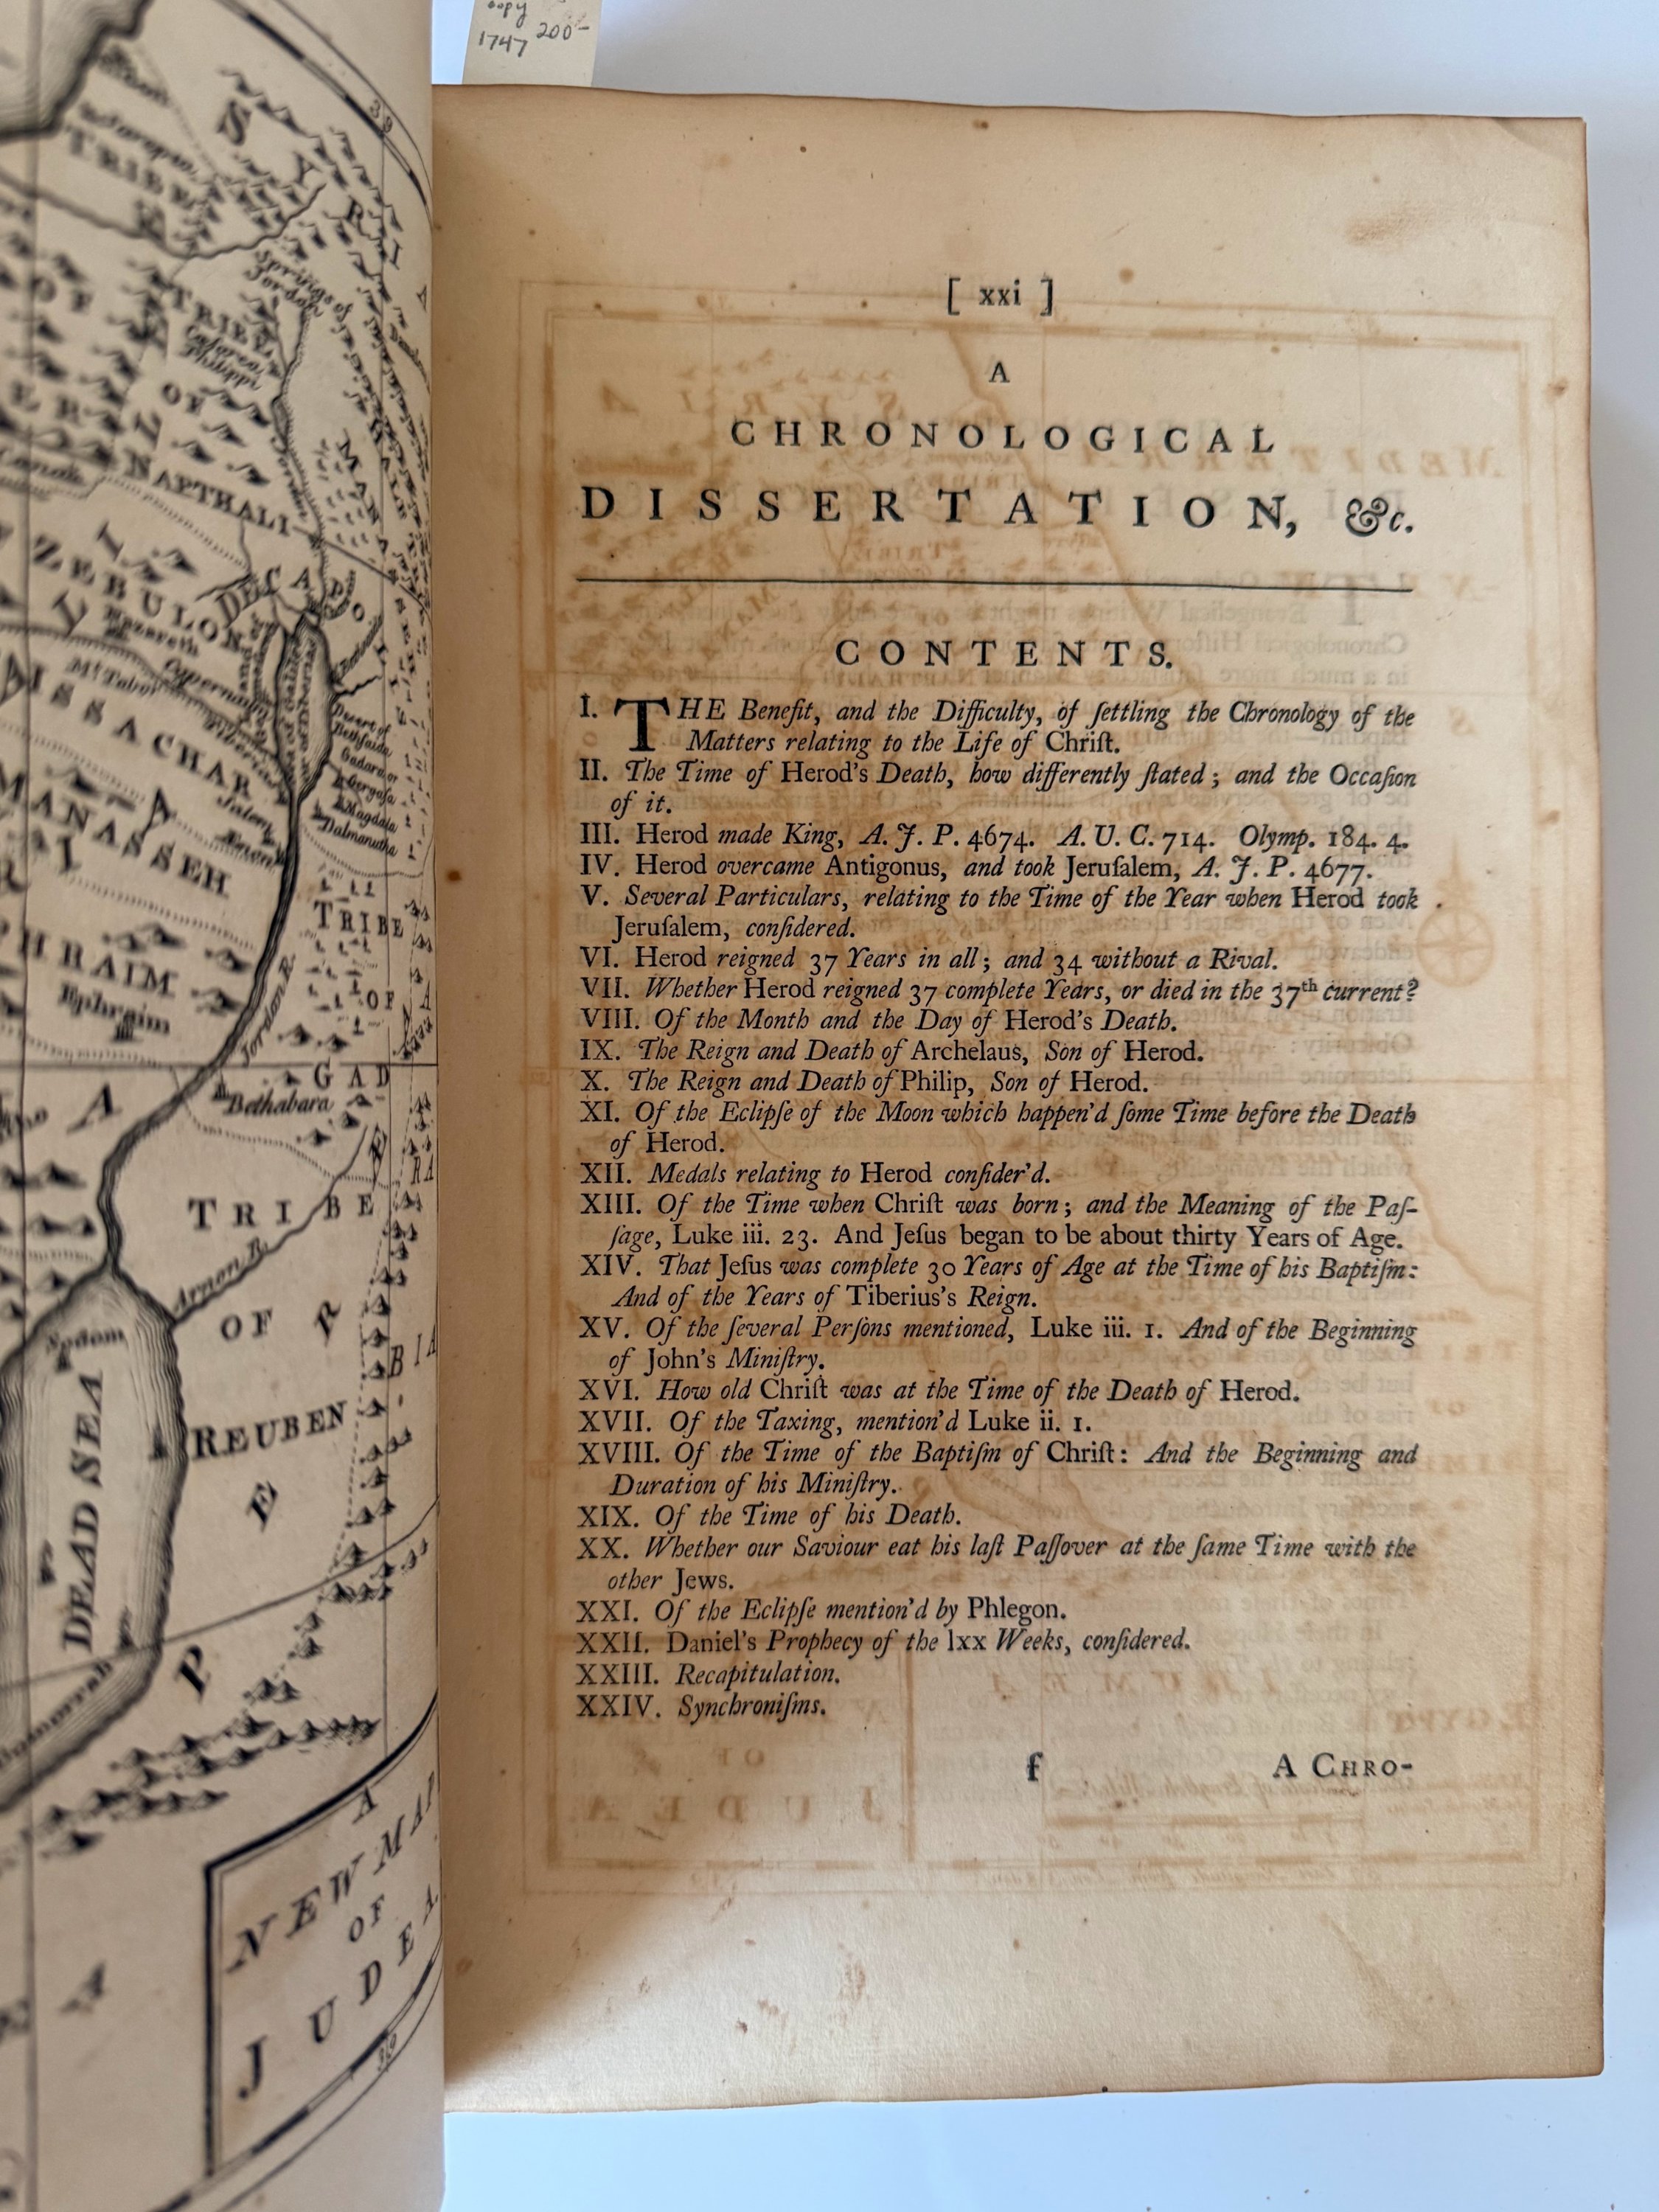 copy
1747 200-
39
S Y R I
TRIBE
Springs of
Jordan
TRIBE
Cæsarea
Philippi
OF
NAPTHALI
ZEBULON
DECAPO
Nazareth
Mt. Tabor
Capernaum
ISSACHAR
Desert of
Bethsaida
Gadara or
Gergesa
Magdala
Dalmanutha
Salem
Ænon
MANASSEH
TRIBE
OF
GAD
Ephraim
Jordan R.
Bethabara
TRIBE
OF
REUBEN
Arnon R.
Sodom
DEAD SEA
Gomorrah
A
NEW MAP
OF
JUDEA
[ xxi ]
A
CHRONOLOGICAL
DISSERTATION, &c.
CONTENTS.
I. THE Benefit, and the Difficulty, of ſettling the Chronology of the
Matters relating to the Life of Chriſt.
II. The Time of Herod's Death, how differently ſtated; and the Occaſion
of it.
III. Herod made King, A. J. P. 4674. A. U. C. 714. Olymp. 184. 4.
IV. Herod overcame Antigonus, and took Jeruſalem, A. J. P. 4677.
V. Several Particulars, relating to the Time of the Year when Herod took
Jeruſalem, conſidered.
VI. Herod reigned 37 Years in all; and 34 without a Rival.
VII. Whether Herod reigned 37 complete Years, or died in the 37th current?
VIII. Of the Month and the Day of Herod's Death.
IX. The Reign and Death of Archelaus, Son of Herod.
X. The Reign and Death of Philip, Son of Herod.
XI. Of the Eclipſe of the Moon which happen'd ſome Time before the Death
of Herod.
XII. Medals relating to Herod conſider'd.
XIII. Of the Time when Chriſt was born; and the Meaning of the Paſ-
ſage, Luke iii. 23. And Jeſus began to be about thirty Years of Age.
XIV. That Jeſus was complete 30 Years of Age at the Time of his Baptiſm:
And of the Years of Tiberius's Reign.
XV. Of the ſeveral Perſons mentioned, Luke iii. 1. And of the Beginning
of John's Miniſtry.
XVI. How old Chriſt was at the Time of the Death of Herod.
XVII. Of the Taxing, mention'd Luke ii. 1.
XVIII. Of the Time of the Baptiſm of Chriſt: And the Beginning and
Duration of his Miniſtry.
XIX. Of the Time of his Death.
XX. Whether our Saviour eat his laſt Paſſover at the ſame Time with the
other Jews.
XXI. Of the Eclipſe mention'd by Phlegon.
XXII. Daniel's Prophecy of the lxx Weeks, conſidered.
XXIII. Recapitulation.
XXIV. Synchroniſms.
f A CHRO-